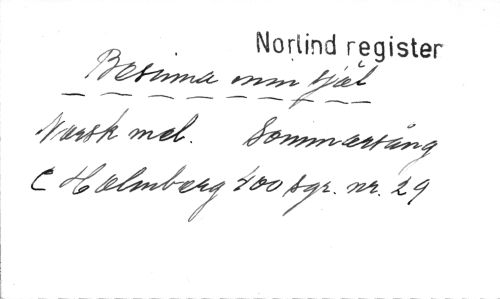 Norlind register
Besinna min själ
Norsk mel. Sommarsång
C Holmberg 400 sgr. nr. 29